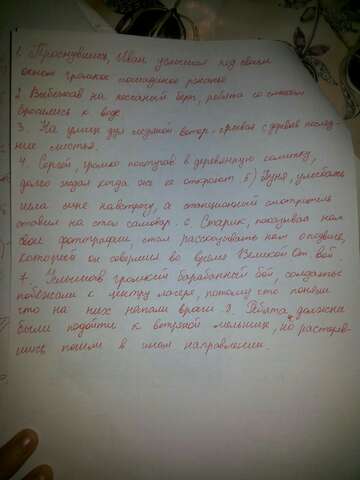 1. Проснувшись, Иван услышал под своим
окном громкое лошадиное ржание
2. Выбежав на песчаный берег, ребята со смехом
бросились к воде
3. На улице дул ледяной ветер, срывая с деревьев послед-
ние листья.
4. Сергей, громко постучав в деревянную калитку,
долго ждал когда ему её откроют. 5) Дуня, улыбаясь
шла мне навстречу, а станционный смотритель
ставил на стол самовар. 6 Старик, показывая нам
свои фотографии, стал рассказывать нам о подвиге,
который он совершил во время Великой От. вой.
7. Услышав громкий барабанный бой, солдаты
побежали к центру лагеря, потому что поняли
что на них напали враги 8. Ребята, должны
были подойти к ветряной мельнице, но растеряв-
шись, пошли в ином направлении.